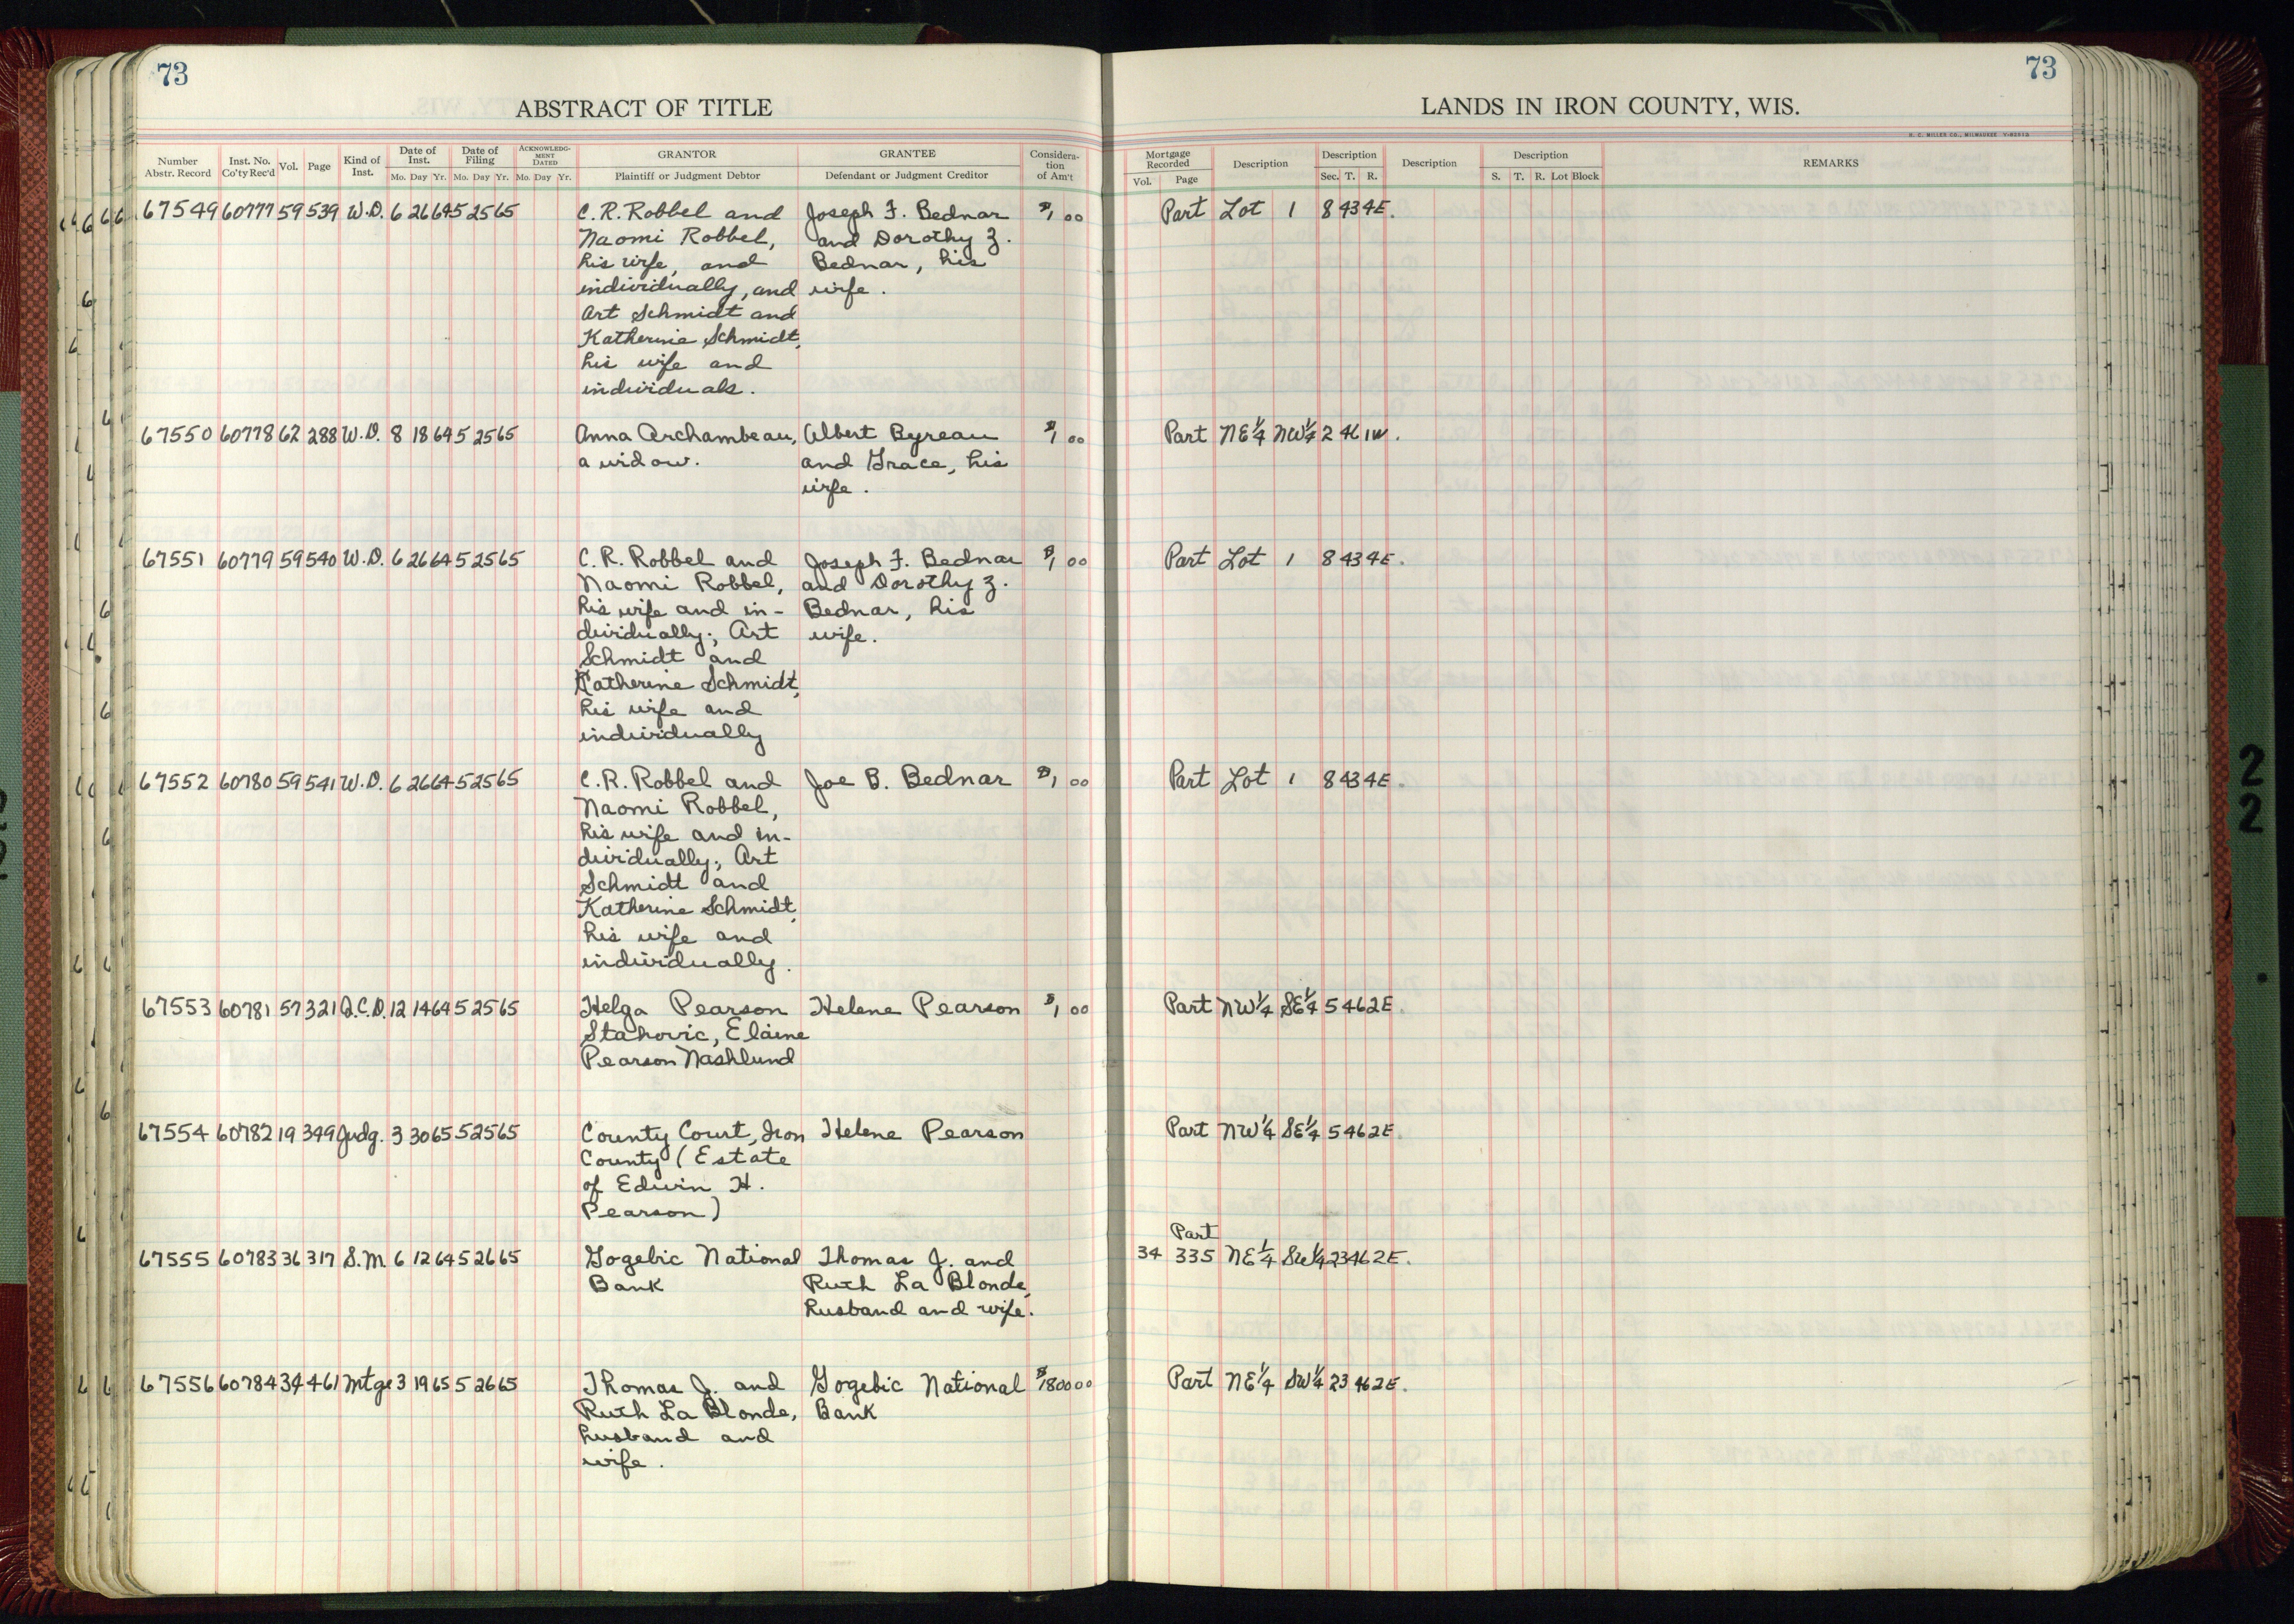 73
ABSTRACT OF TITLE
Number Abstr. Record | Inst. No. Co'ty Rec'd | Vol. | Page | Kind of Inst. | Date of Inst. Mo. Day Yr. | Date of Filing Mo. Day Yr. | ACKNOWLEDG-MENT DATED Mo. Day Yr. | GRANTOR Plaintiff or Judgment Debtor | GRANTEE Defendant or Judgment Creditor | Considera-tion of Am't
67549 60777 59 539 W.D. 6 26 64 5 25 65 C.R. Robbel and Joseph F. Bednar $1 00
Naomi Robbel, and Dorothy Z.
his wife, and Bednar, his
individually, and wife.
Art Schmidt and
Katherine Schmidt,
his wife and
individuals.
67550 60778 62 288 W.D. 8 18 64 5 25 65 Anna Archambeau, Albert Byreau $1 00
a widow. and Grace, his
wife.
67551 60779 59 540 W.D. 6 26 64 5 25 65 C.R. Robbel and Joseph F. Bednar $1 00
Naomi Robbel, and Dorothy Z.
his wife and in- Bednar, his
dividually; Art wife.
Schmidt and
Katherine Schmidt,
his wife and
individually
67552 60780 59 541 W.D. 6 26 64 5 25 65 C.R. Robbel and Joe B. Bednar $1 00
Naomi Robbel,
his wife and in-
dividually; Art
Schmidt and
Katherine Schmidt,
his wife and
individually.
67553 60781 57 321 Q.C.D. 12 14 64 5 25 65 Helga Pearson Helene Pearson $1 00
Stahovic, Elaine
Pearson Nashlund
67554 60782 19 349 Judg. 3 30 65 5 25 65 County Court, Iron Helene Pearson
County (Estate
of Edwin H.
Pearson)
67555 60783 36 317 S.M. 6 12 64 5 26 65 Gogebic National Thomas J. and
Bank Ruth La Blonde,
husband and wife.
67556 60784 34 461 Mtge 3 19 65 5 26 65 Thomas J. and Gogebic National $1800 00
Ruth La Blonde, Bank
husband and
wife.
73
LANDS IN IRON COUNTY, WIS.
H. C. MILLER CO., MILWAUKEE
Mortgage Recorded Vol. Page | Description | Description Sec. T. R. | Description | Description S. T. R. Lot Block | REMARKS
Part Lot 1 8 43 4E.
Part NE¼ NW¼ 2 46 1W.
Part Lot 1 8 43 4E.
Part Lot 1 8 43 4E.
Part NW¼ SE¼ 5 46 2E.
Part NW¼ SE¼ 5 46 2E.
Part
34 335 NE¼ SW¼ 23 46 2E.
Part NE¼ SW¼ 23 46 2E.
2
2